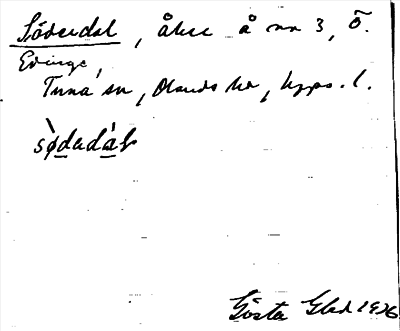 Söderdal, åker å nr 3, Ö.
Edinge,
Tuna sn, Olands hd, Upps. l.
sø̀dədál
Gösta Glad 1926